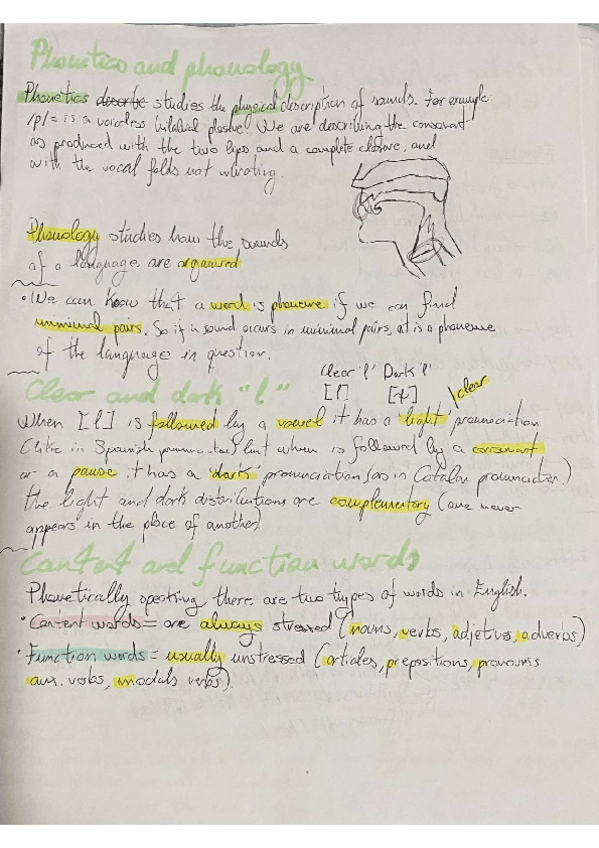 Phonetics and phonology
Phonetics describe studies the physical description of sounds. For example:
/p/= is a voiceless bilabial plosive. We are describing the consonant
as produced with the two lips and a complete closure, and
with the vocal folds not vibrating.
Phonology studies how the sounds
of a language are organised
• We can know that a word is phoneme if we can find
minimal pairs. So if a sound occurs in minimal pairs, it is a phoneme
of the language in question.
Clear 'l' Dark 'l'
Clear and dark "l"
[l] [ɫ] clear
When [l] is followed by a vowel it has a 'light' pronunciation
(like in Spanish pronunciation) but when is followed by a consonant
or a pause it has a 'dark' pronunciation (as in Catalan pronunciation)
the light and dark distributions are complementary (one never
appears in the place of another)
Content and function words
Phonetically speaking, there are two types of words in English.
• Content words = are always stressed (nouns, verbs, adjetives, adverbs)
• Function words = usually unstressed (articles, prepositions, pronouns
aux. verbs, modals verbs).